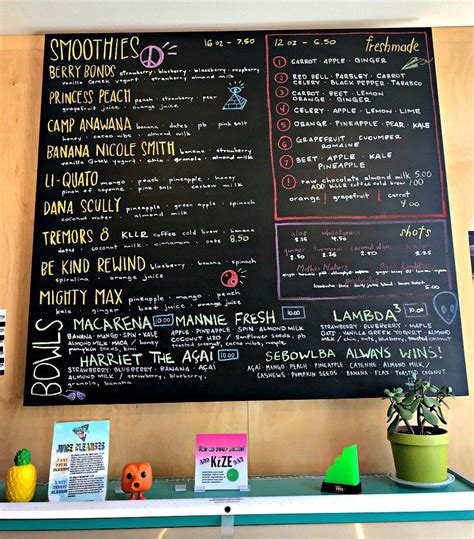 SMOOTHIES 16 oz - 7.50
BERRY BONDS strawberry · blueberry · blackberry · raspberry
vanilla Greek yogurt · strawberry · almond milk
PRINCESS PEACH peach · strawberry · pear
grapefruit juice · orange juice
CAMP ANAWANA banana · dates · pb · pink salt
honey · cacao nibs · almond milk
BANANA NICOLE SMITH banana · strawberry
vanilla Greek yogurt · chia · granola · almond milk
LI-QUATO mango · peach · pineapple · honey
pink salt · cashew milk
DANA SCULLY pineapple · green apple · spinach
coconut water · almond milk
TREMORS 8 KLLR coffee cold brew · banana
dates · coconut milk · cinnamon · oats 8.50
BE KIND REWIND blueberry · banana · spinach
spirulina · orange juice
MIGHTY MAX pineapple · mango · peach
kale · ginger · beet juice · orange juice
12 oz - 6.50 freshmade
1 CARROT · APPLE · GINGER
2 RED BELL · PARSLEY · CARROT
CELERY · BLACK PEPPER · TABASCO
3 CARROT · BEET · LEMON
ORANGE · GINGER
4 CELERY · APPLE · LEMON · LIME
5 ORANGE · PINEAPPLE · PEAR · KALE
6 GRAPEFRUIT · CUCUMBER
ROMAINE
7 BEET · APPLE · KALE
PINEAPPLE
! raw chocolate almond milk 5.00
ADD KLLR coffee cold brew / 6.00
orange / grapefruit / carrot
4.00
shots
aloe wheatgrass
ginger turmeric coconut algin
Mother Nature
BOWLS
MACARENA 10.00
BANANA · MANGO · SPIN · KALE
ALMOND MILK · MACA / honey
pumpkin seeds, kiwi
MANNIE FRESH 10.00
APPLE · PINEAPPLE · SPIN · ALMOND MILK
COCONUT H2O / sunflower seeds, pb
toasted coconut, cacao nibs,
LAMBDA3 10.00
STRAWBERRY · BLUEBERRY · MAPLE
OATS · VANILLA GREEK YOGURT · ALMOND
MILK / chia, oats, blueberry, toasted coconut
HARRIET THE AÇAI 10.00
STRAWBERRY · BLUEBERRY · BANANA · AÇAI
ALMOND MILK / strawberry, blueberry,
granola, banana
SEBOWLBA ALWAYS WINS!
AÇAI · MANGO · PEACH · PINEAPPLE · CAYENNE · ALMOND MILK /
CASHEWS · PUMPKIN SEEDS · BANANA · FLAX · TOASTED COCONUT
JUICE CLEANSES
ADD
KIZE